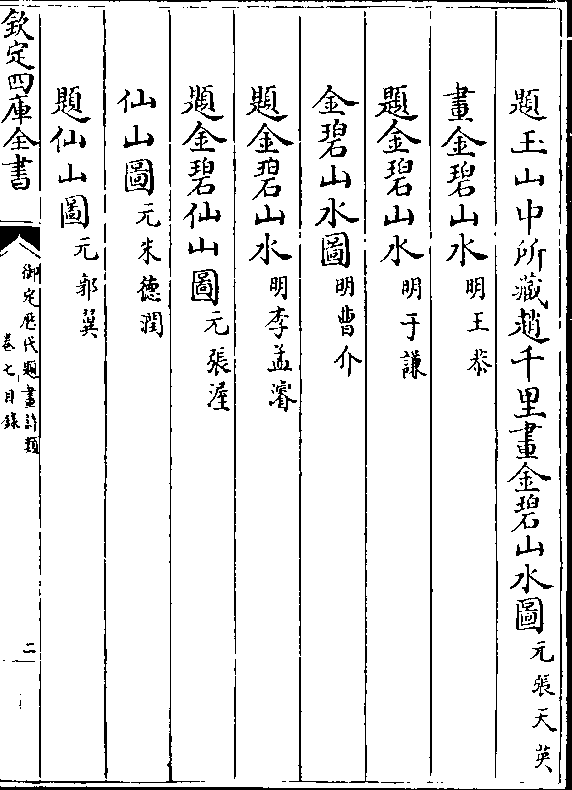 題玉山中所藏趙千里畫金碧山水圖元張天英
畫金碧山水明王恭
題金碧山水明于謙
金碧山水圖明曹介
題金碧山水明李孟濬
題金碧仙山圖元張渥
仙山圖元朱德潤
題仙山圖元郭翼
欽定四庫全書
御定歷代題畫詩類
卷七目錄
二